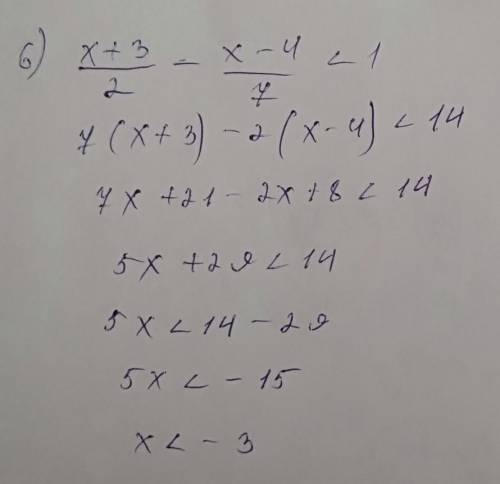 б) (x+3)/2 - (x-4)/7 < 1
7(x+3) - 2(x-4) < 14
7x + 21 - 2x + 8 < 14
5x + 29 < 14
5x < 14 - 29
5x < -15
x < -3